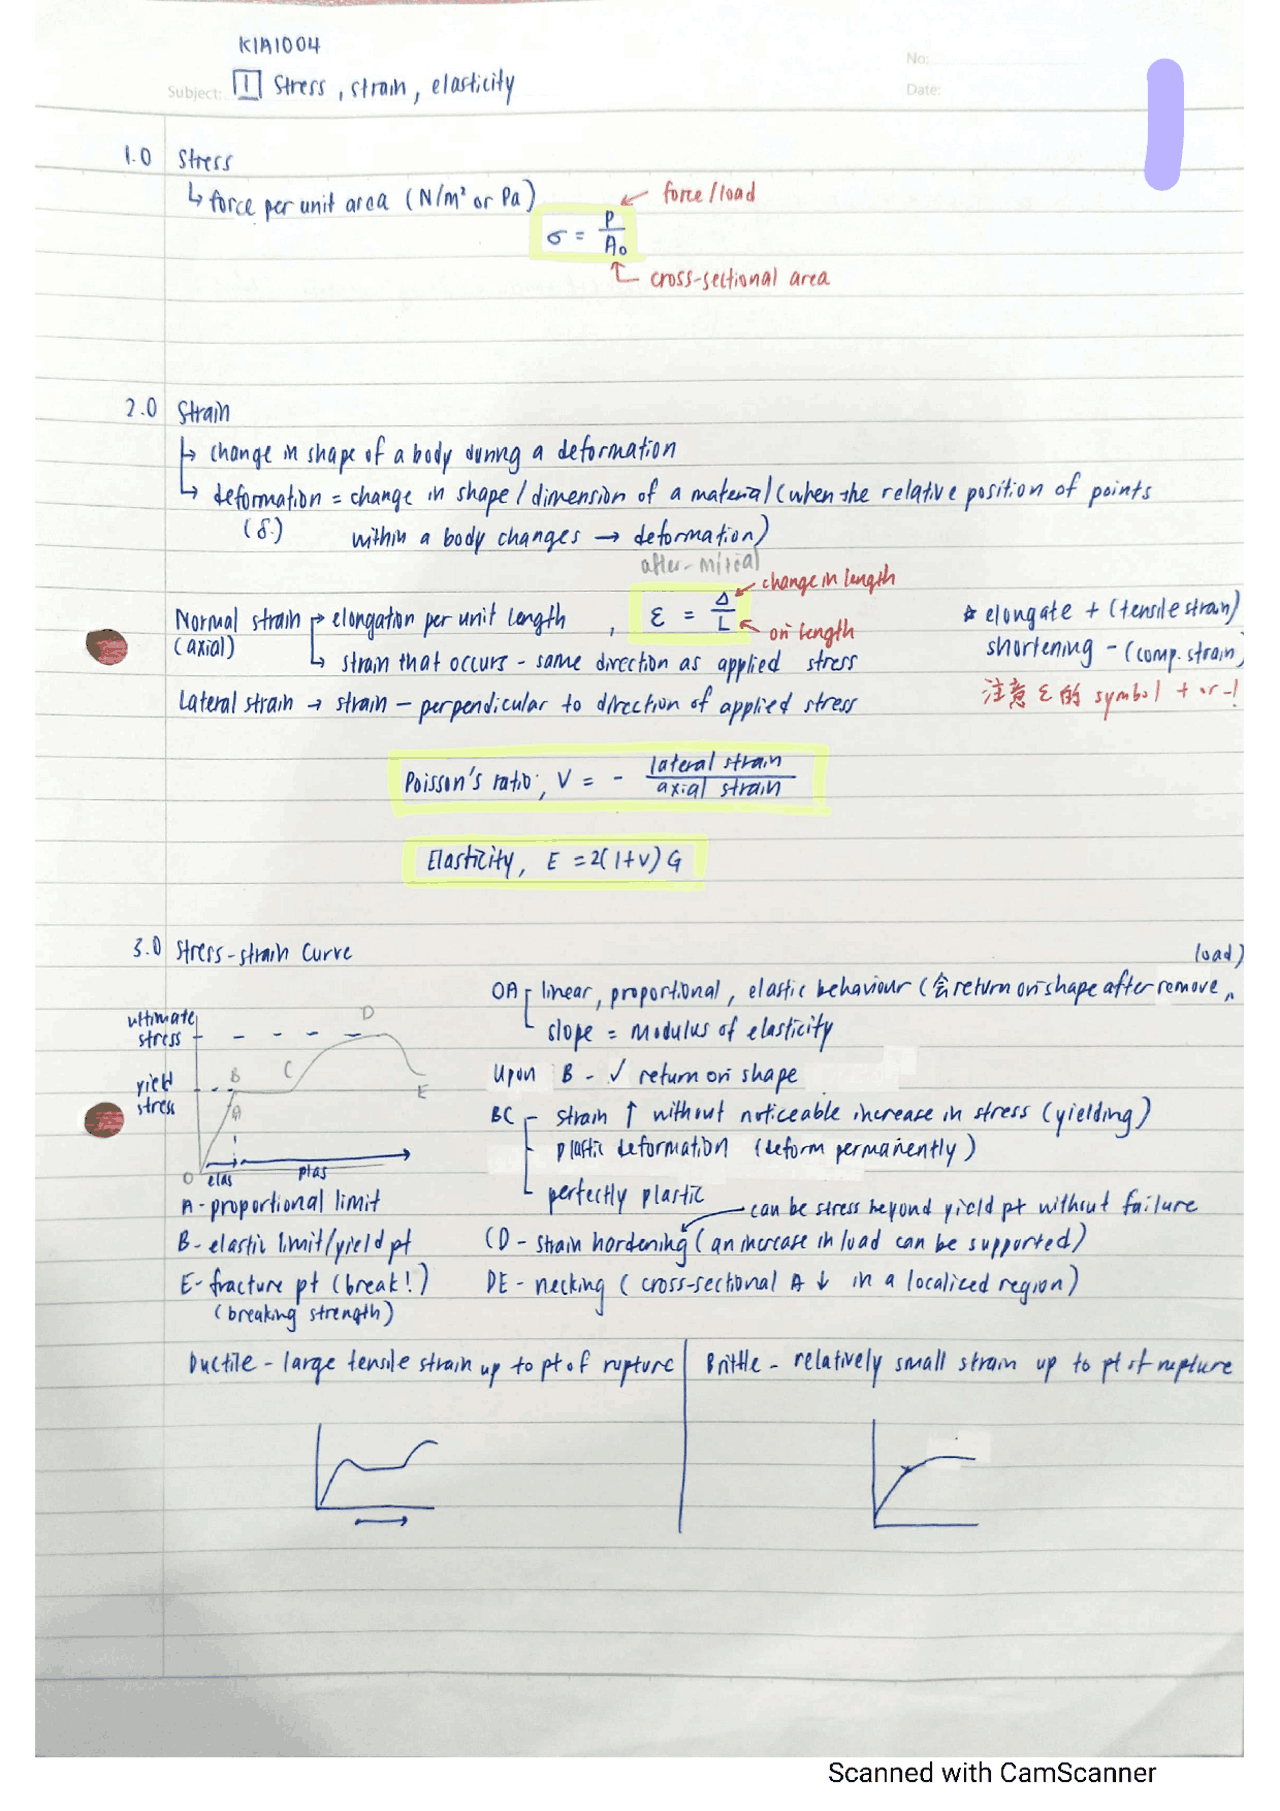 KIA1004
No:
Subject: 1 Stress, strain, elasticity
Date:
1.0 Stress
↳ force per unit area (N/m² or Pa)
force/load
σ = P/A₀
cross-sectional area
2.0 Strain
↳ change in shape of a body during a deformation
↳ deformation = change in shape / dimension of a material (when the relative position of points
(δ.) within a body changes → deformation)
after - initial
change in length
Normal strain → elongation per unit length, ε = Δ/L
ori length
(axial) ↳ strain that occurs - same direction as applied stress
☆ elongate + (tensile strain)
shortening - (comp. strain)
注意 ε 的 symbol + or -!
Lateral strain → strain - perpendicular to direction of applied stress
Poisson's ratio, V = - lateral strain/axial strain
Elasticity, E = 2(1+V)G
3.0 Stress-strain Curve
ultimate stress
yield stress
O A B C D E
elas plas
A - proportional limit
B - elastic limit/yield pt
E - fracture pt (break!)
(breaking strength)
OA - linear, proportional, elastic behaviour (会 return ori shape after remove load)
slope = modulus of elasticity
Upon B - ✓ return ori shape
BC - strain ↑ without noticeable increase in stress (yielding)
plastic deformation (deform permanently)
perfectly plastic
can be stress beyond yield pt without failure
CD - strain hardening (an increase in load can be supported)
DE - necking (cross-sectional A ↓ in a localized region)
Ductile - large tensile strain up to pt of rupture
Brittle - relatively small strain up to pt of rupture
Scanned with CamScanner